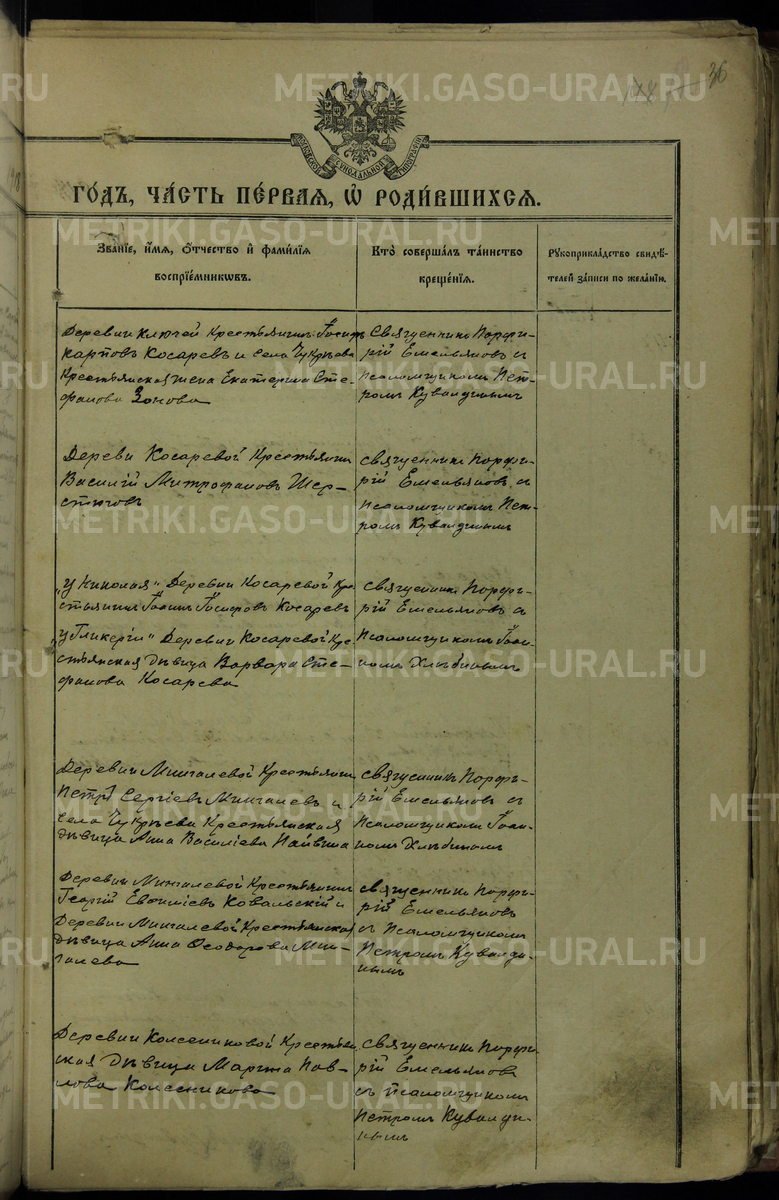 36
МОСКОВСКОЙ СѴНОДАЛЬНОЙ ТИПОГРАФІИ
ГО́ДЪ, ЧА́СТЬ ПЕ́РВАЯ, Ѽ РОДИ́ВШИХСЯ.
Зва́нїе, и́мя, ѻ́тчество и҆ фами́лїя
воспрїе́мникѡвъ.
Кто̀ соверша́лъ та́инство
креще́нїя.
Рукоприкла́дство свидѣ́-
телей за́писи по жела́нїю.
Деревни Ключей Крестьянинъ Іосифъ
Карповъ Косаревъ и села Чукрѣева
Крестьянская жена Екатерина Сте-
фанова Зонова
Священникъ Порфи-
рій Емельяновъ с
Псаломщикомъ Пет-
ромъ Кувалдинымъ
Деревни Косаревой Крестьянинъ
Василій Митрофановъ Шер-
стюговъ
Священникъ Порфи-
рій Емельяновъ с
Псаломщикомъ Пет-
ромъ Кувалдинымъ
„У Николая" Деревни Косаревой Кре-
стьянинъ Іоаннъ Іосифовъ Косаревъ
„У Гликеріи" Деревни Косаревой Кре-
стьянская дѣвица Варвара Сте-
фанова Косарева
Священникъ Порфи-
рій Емельяновъ с
Псаломщикомъ Іоан-
номъ Хлѣбинымъ
Деревни Мингалевой Крестьянинъ
Петръ Сергіевъ Мингалевъ и
села Чукрѣева Крестьянская
дѣвица Анна Василіева Пайвина
Священникъ Порфи-
рій Емельяновъ с
Псаломщикомъ Іоан-
номъ Хлѣбинымъ
Деревни Мингалевой Крестьянинъ
Георгій Евѳиміевъ Ковальскій и
Деревни Мингалевой Крестьянская
дѣвица Анна Ѳеодорова Мин-
галева
Священникъ Порфи-
рій Емельяновъ
съ Псаломщикомъ
Петромъ Кувалди-
нымъ
Деревни Колесниковой Крестьян-
ская дѣвица Марѳа Пав-
лова Колесникова
Священникъ Порфи-
рій Емельяновъ
съ Псаломщикомъ
Петромъ Кувалди-
нымъ
METRIKI.GASO-URAL.RU